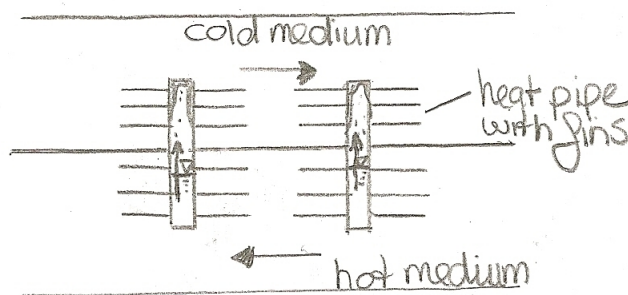 cold medium
heat pipe
with fins
hot medium